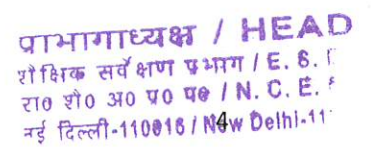 प्राभागाध्यक्ष / HEAD
शैक्षिक सर्वेक्षण प्रभाग / E. S.
रा० शै० अ० प्र० प० / N. C. E.
नई दिल्ली-110016 / New Delhi-11
4